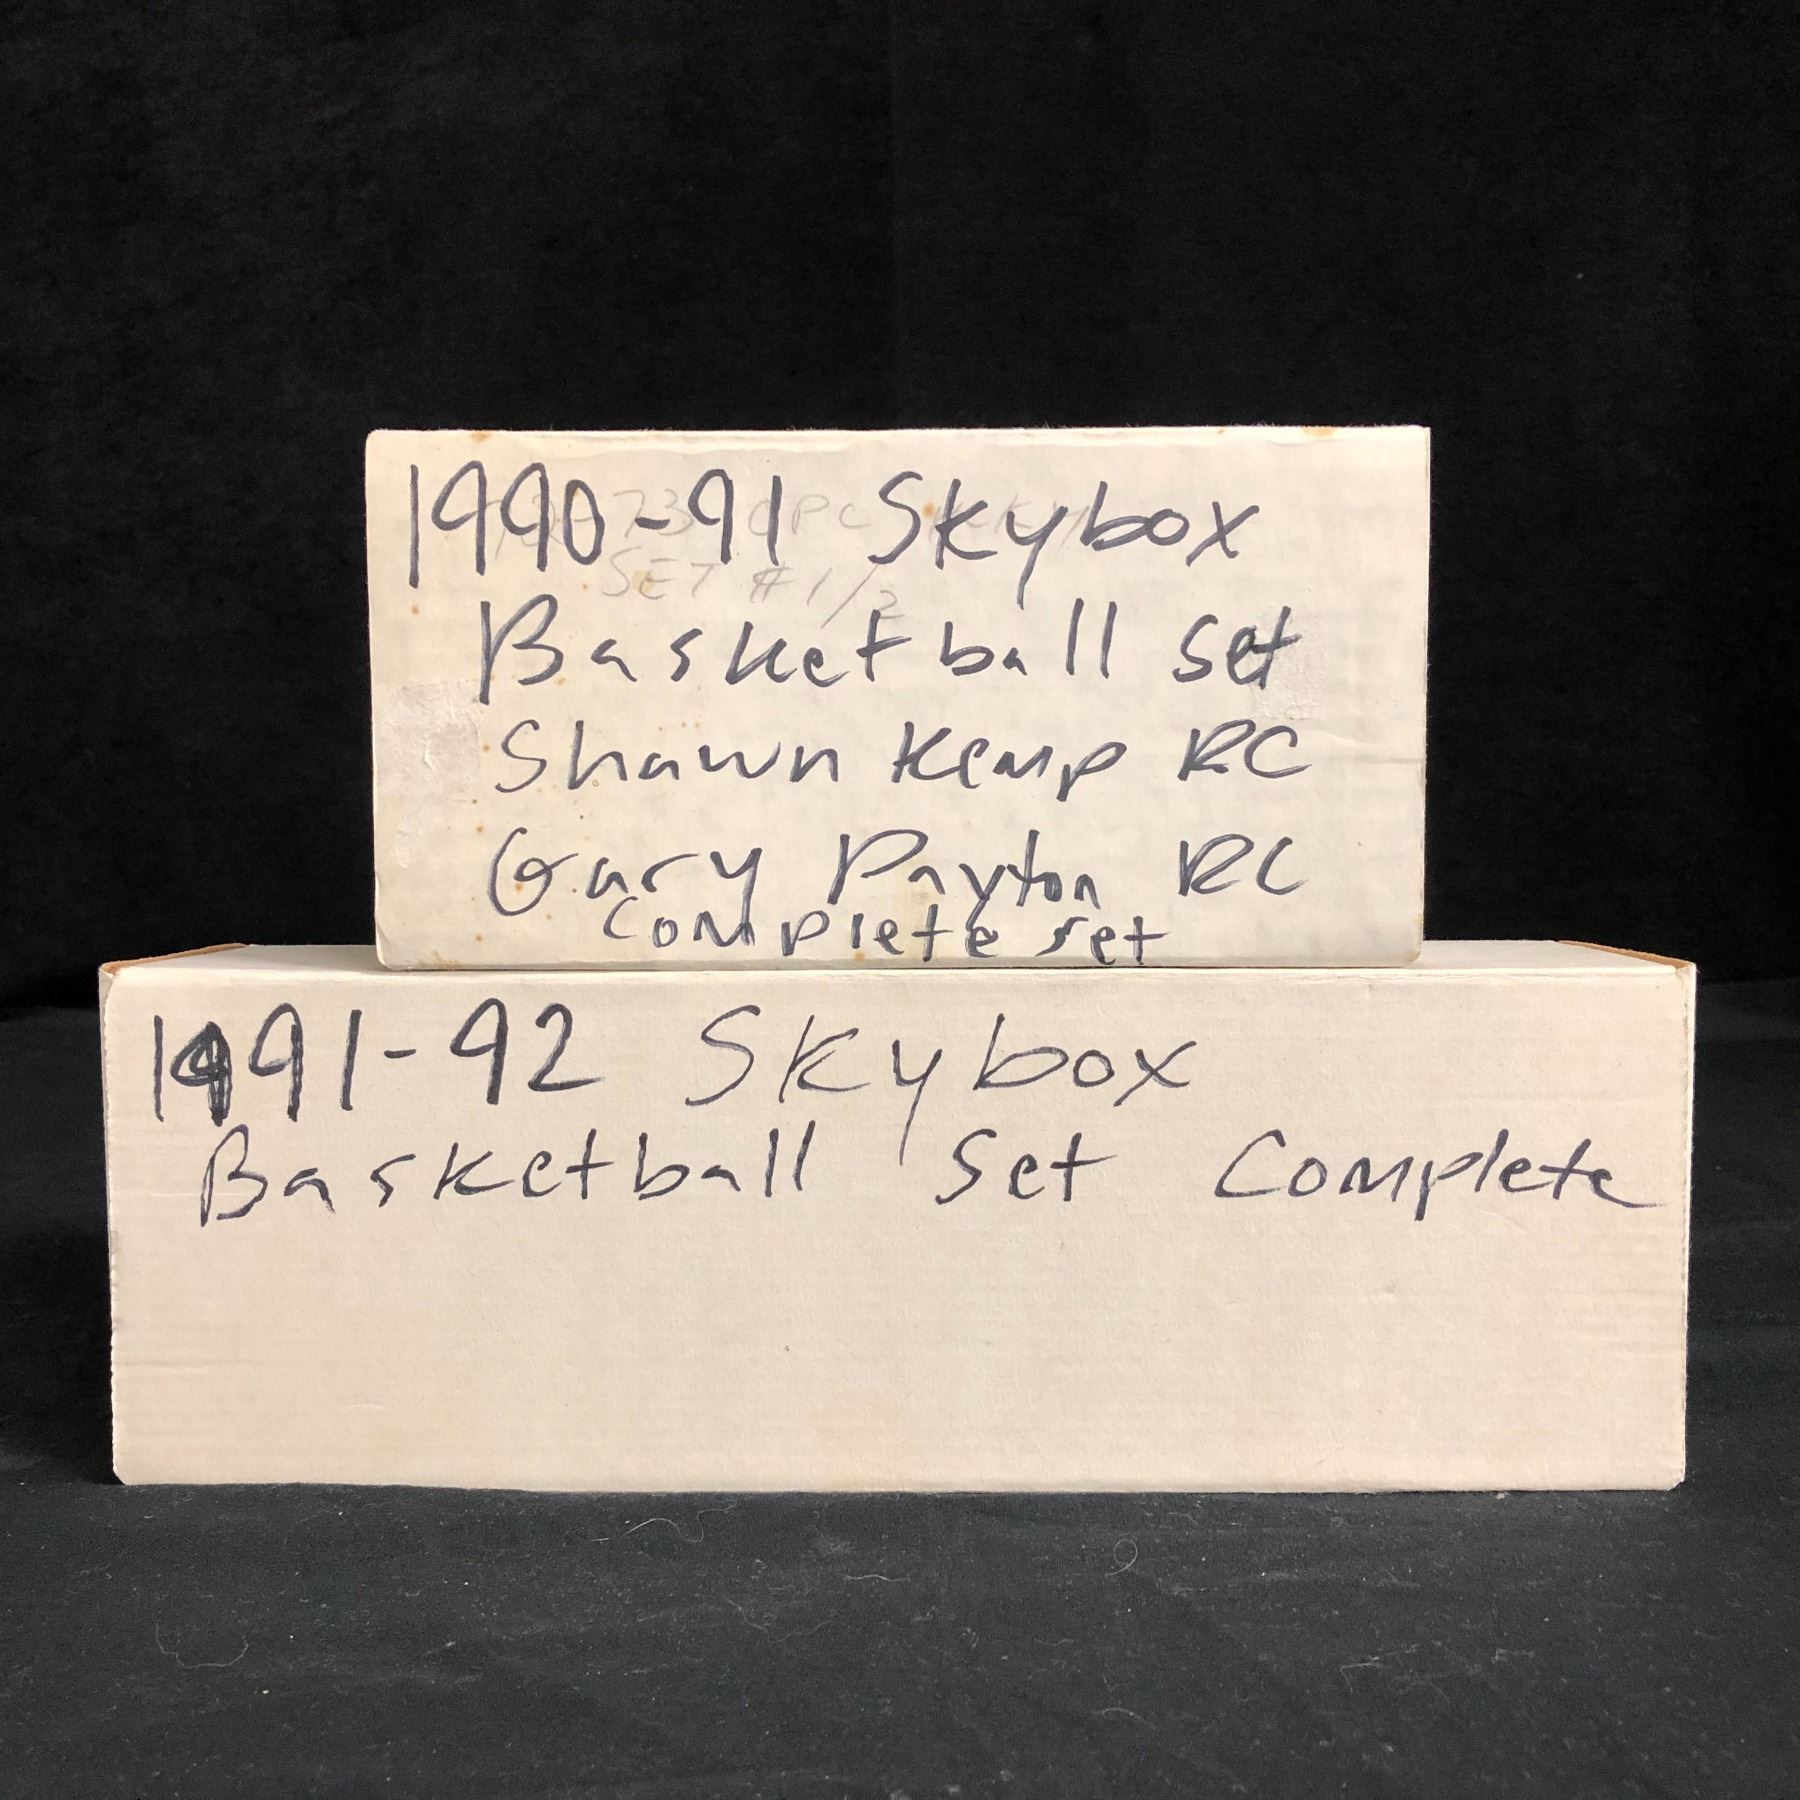 1990-91 Skybox
SET #1/2
Basketball Set
Shawn Kemp RC
Gary Payton RC
Complete set
1991-92 Skybox
Basketball Set Complete